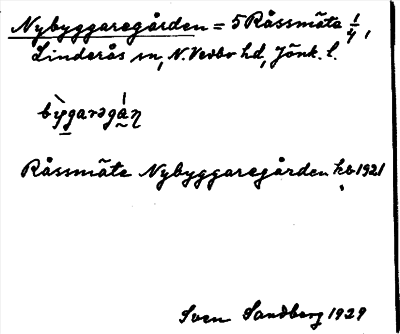 Nybyggaregården = 5 Råssmäte 1/4,
Linderås sn, N. Vedbo hd, Jönk. l.
bỳgarəgán
Råssmäte Nybyggaregården kb 1921
Sven Sandberg 1929